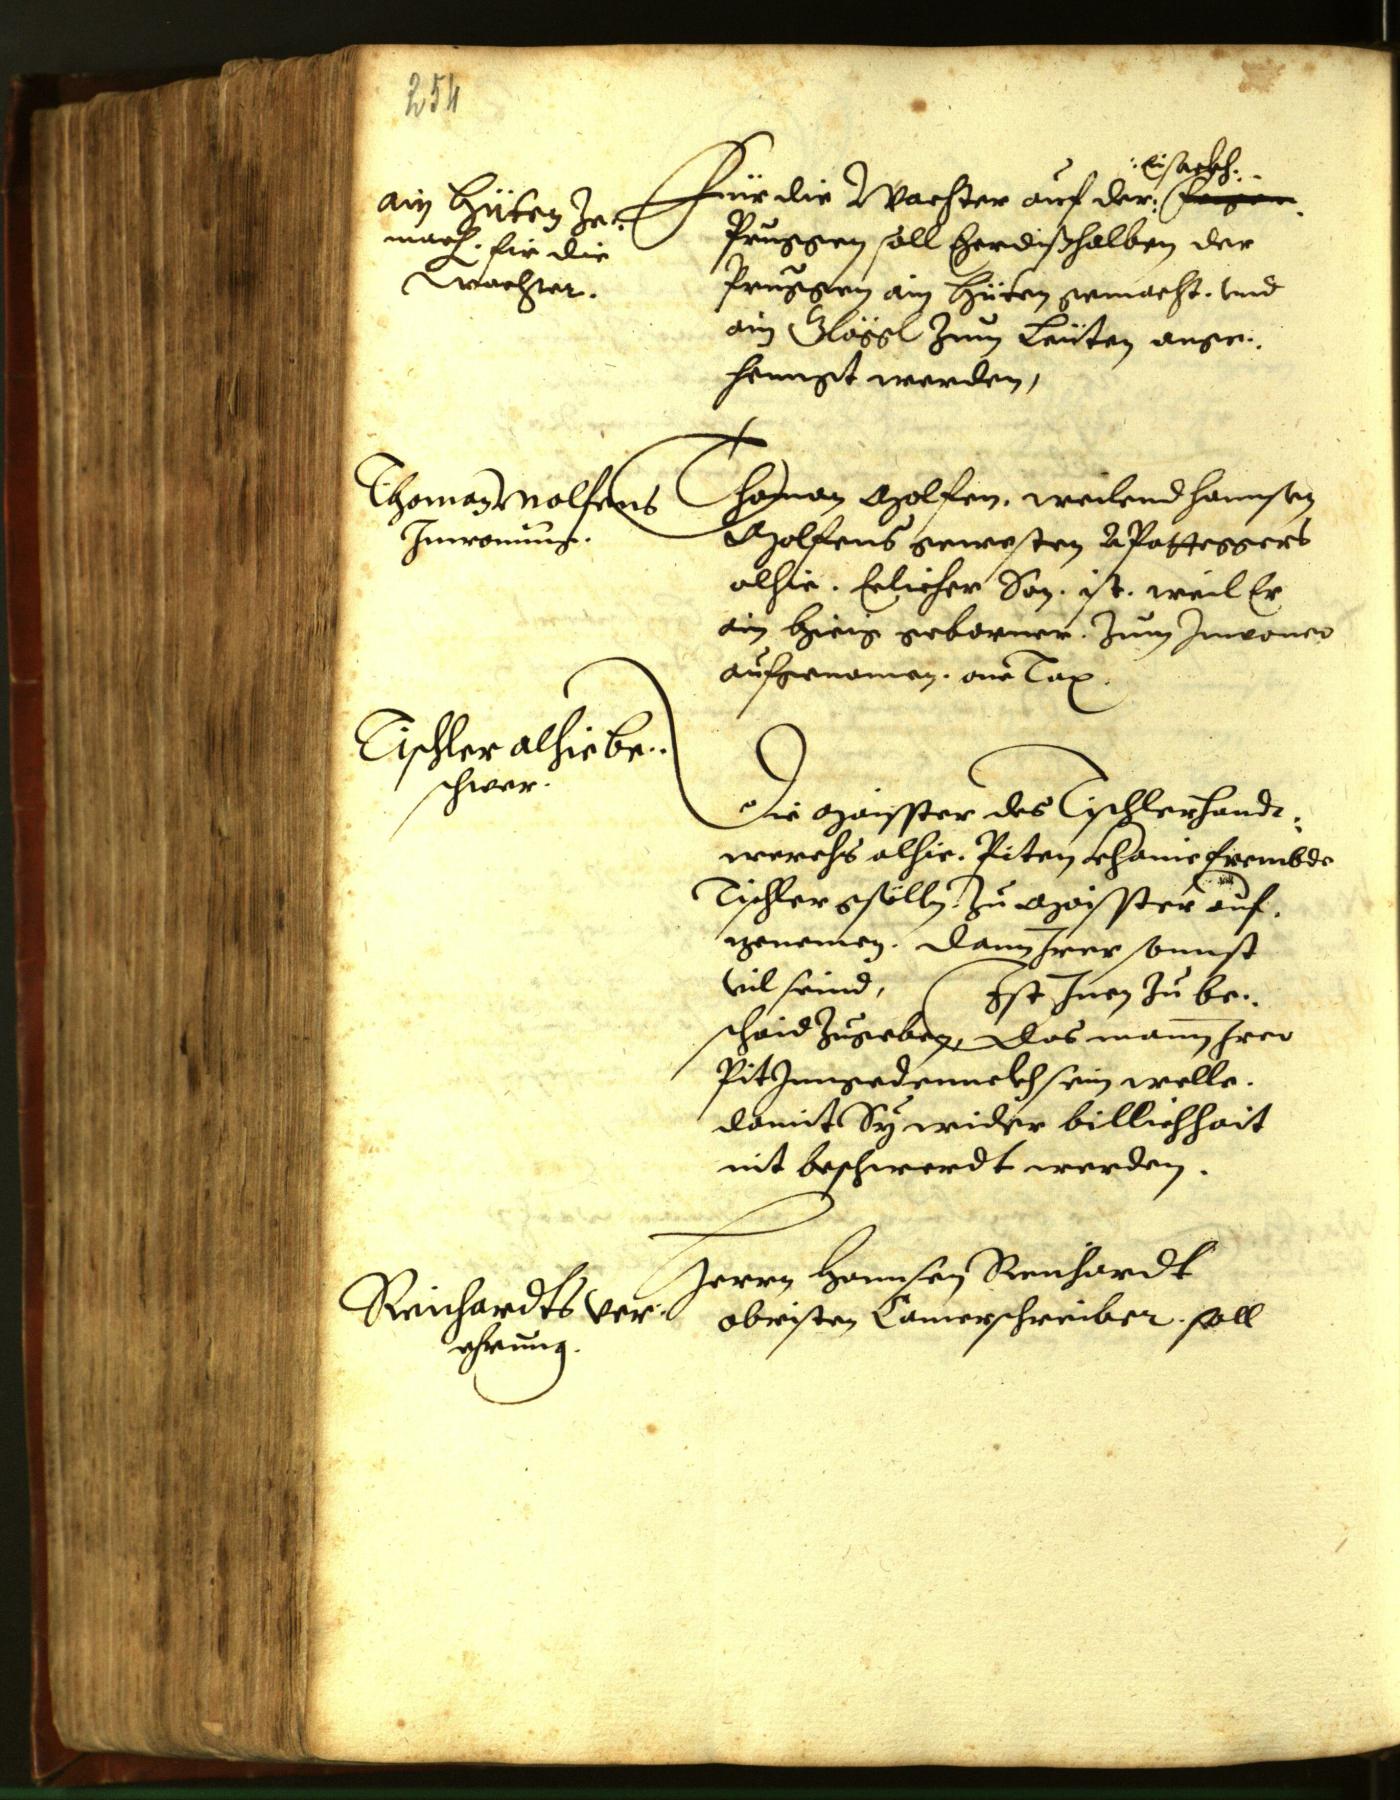 254
ain Hüten ze
mach. für die
Wachter.
Für die Wachter auf der: Eisackh:
Pruggen soll herdißhalben der
Pruggen ain Hüten gemacht. und
ain Glöggl zum Leüten ange-
henngt werden,
Thoman Wolfens
Inwonung.
Thoman Wolfen. weilend Hannsen
Wolfens gewesten
alhie. Eelicher Son. ist. weil Er
ain hieig geborner. zum Inwoner
aufgenomen. one Tax.
Tischler alhie be-
schwer.
Die Maister des Tischlerhandt-
werchs alhie. Piten khaine frembde
Tischler gsölln. zu Maister auf-
zenemen. dann Irer sonnst
vil seind, Ist Inen zu be-
schaid zugeben, das mann Irer
Pit Inngedennckh sein welle.
damit Sy wider billichhait
nit beschwerdt werden.
Reichardts ver-
ehrung.
Herrn Hannsen Reichardt
obristen Camerschreiber. soll